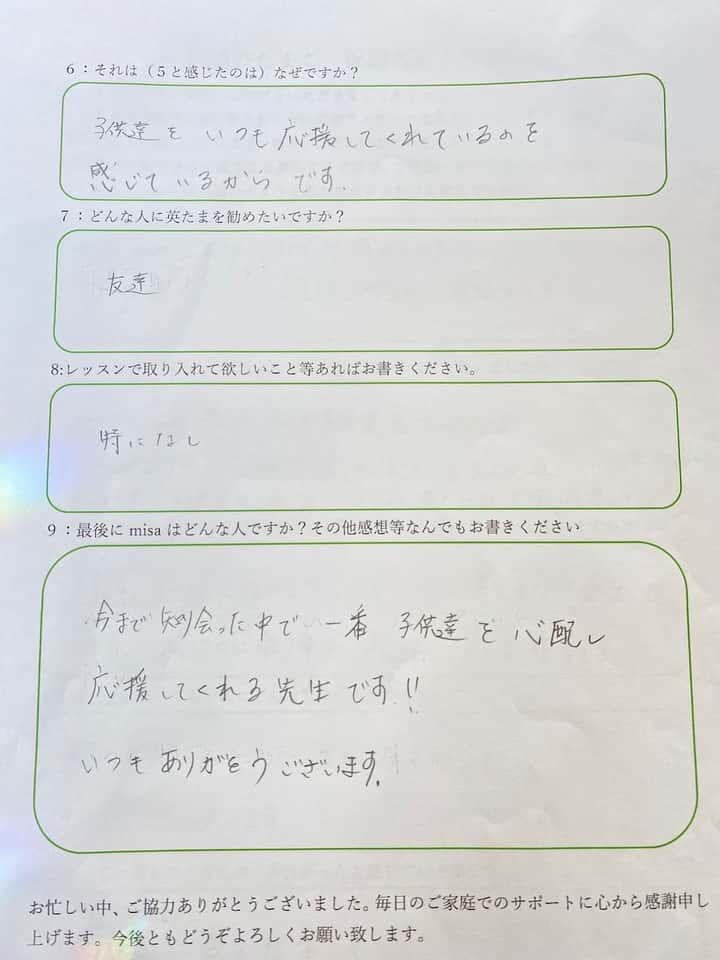 6：それは（５と感じたのは）なぜですか？
子供達を いつも応援してくれているのを
感じているからです.
7：どんな人に英たまを勧めたいですか？
友達
8:レッスンで取り入れて欲しいこと等あればお書きください。
時になし
9：最後に misa はどんな人ですか？その他感想等なんでもお書きください
今まで知り会った中で一番 子供達を心配し
応援してくれる先生です!!
いつもありがとうございます.
お忙しい中、ご協力ありがとうございました。毎日のご家庭でのサポートに心から感謝申し
上げます。今後ともどうぞよろしくお願い致します。